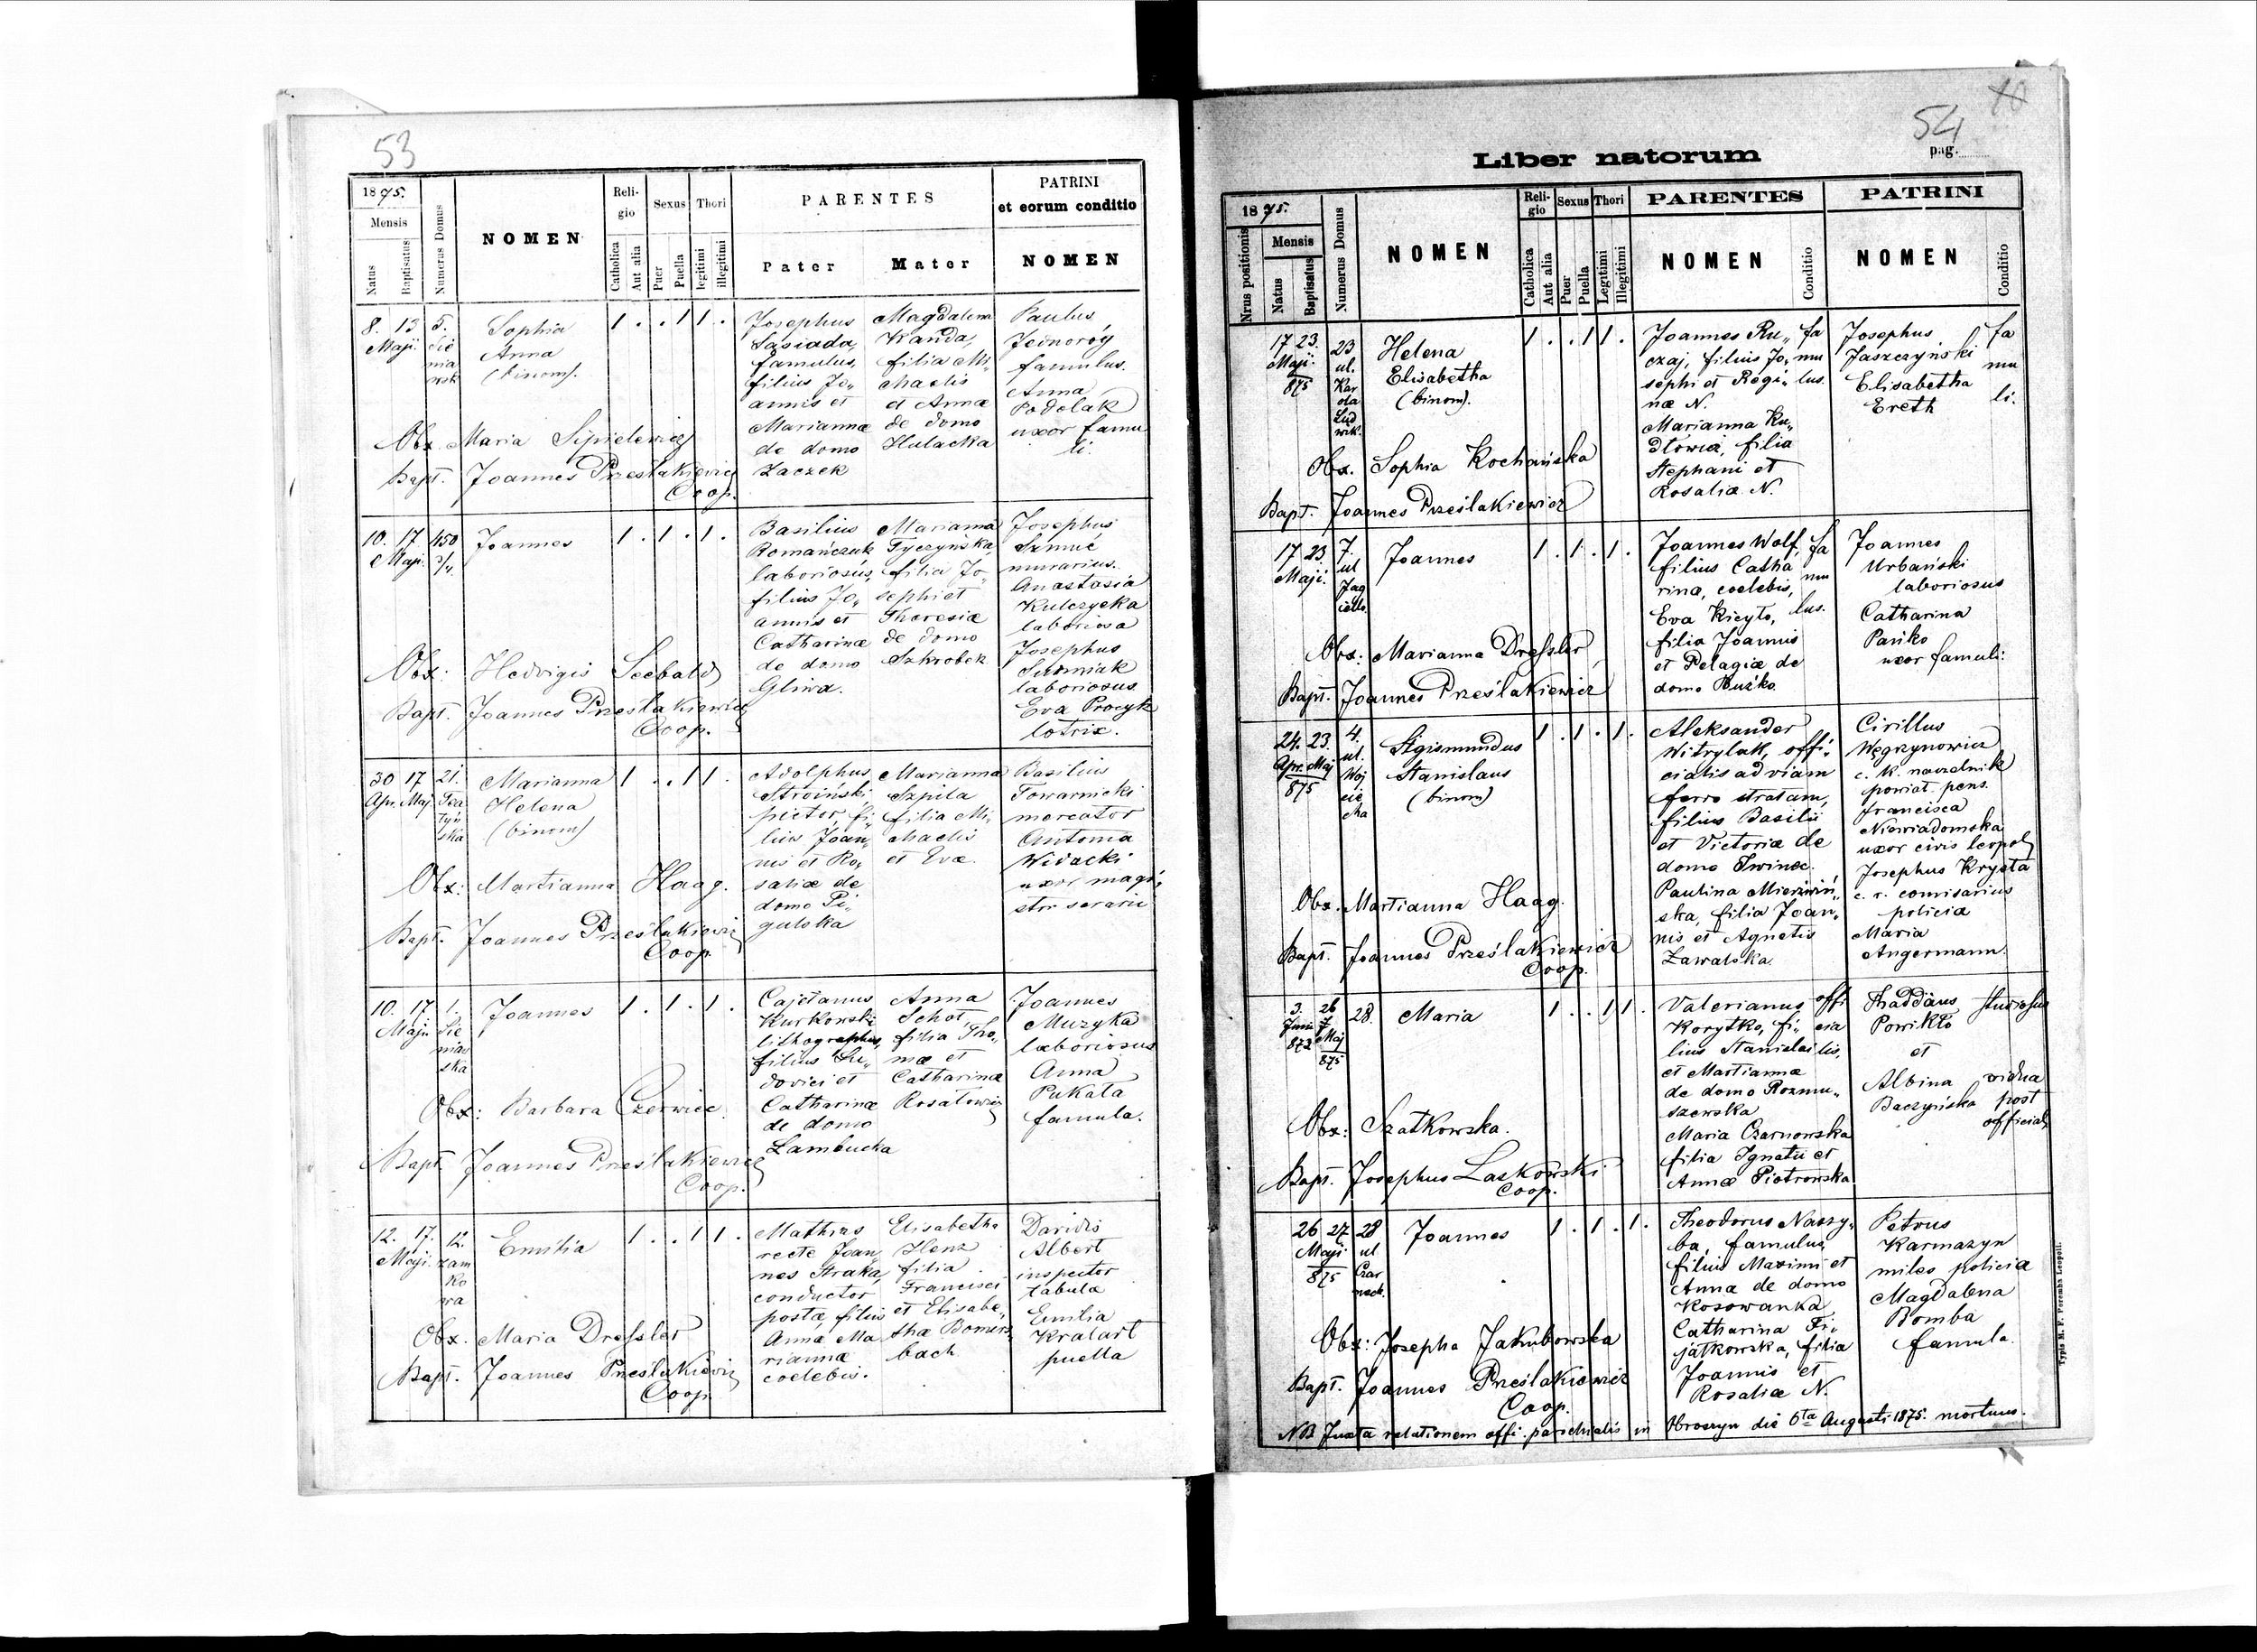 53
1875.
Mensis
Natus
Baptisatus
Numerus Domus
NOMEN
Religio
Catholica
Aut alia
Sexus
Puer
Puella
Thori
legitimi
illegitimi
PARENTES
Pater
Mater
PATRINI
et eorum conditio
NOMEN
8. 13
Maji.
5.
Sie
nia
wsk
Sophia
Anna
(binom).
1 . . 1 1 .
Josephus
Sasiada,
famulus,
filius Jo„
annis et
Marianna
de domo
Zaczek
Magdalena
Wanda,
filia Mi„
chaelis
et Annæ
de domo
Hulacka
Paulus
Jednoróg
famulus.
Anna
Podolak
uxor famu
li.
Obx. Maria Sipielewicz
Bapt. Joannes Prześlakiewicz
Coop.
10. 17
Maji.
450
3/4.
Joannes
1 . 1 . 1 .
Basilius
Romańczuk
laboriosus,
filius Jo„
annis et
Catharinæ
de domo
Gliwa.
Marianna
Tyczyńska,
filia Jo„
sephi et
Theresiæ
de domo
Szkrobek
Josephus
Szmuć
murarius.
Anastasia
Kulczycka
laboriosa
Josephus
laboriosus
Eva Procyk
lotrix.
Obx: Hedvigis Seebald
Bapt. Joannes Prześlakiewicz
Coop.
30 17
Apr. Maj.
21.
Tea
tyń
ska
Marianna
Helena
(binom)
1 . . 1 1 .
Adolphus
Stroiński,
pictor, fi„
lius Joan„
nis et Ro„
saliæ de
domo Pi„
gulska
Marianna
Szpila
filia Mi„
chaelis
et Evæ.
Basilius
Towarnicki
mercator
Antonia
Widacki
uxor magi„
stri serarii
Obx: Martianna Haag.
Bapt. Joannes Prześlakiewicz
Coop.
10. 17.
Maji
1.
Sie
niaw
ska
Joannes
1 . 1 . 1 .
Cajetanus
Kurkowski
lithographus,
filius Lu„
dovici et
Catharinæ
de domo
Lambucka
Anna
Schot,
filia Tho„
mæ et
Catharinæ
Rosatowicz
Joannes
Muzyka
laboriosus
Anna
Pukata
famula.
Obx: Barbara Czerwiec.
Bapt. Joannes Prześlakiewicz
Coop.
12. 17.
Maji.
12.
zam
ko
wa
Emilia
1 . . 1 1 .
Mathias
recte Joan„
nes Straka,
conductor
postæ, filius
Anna Ma
rianna
coelebis.
Elisabetha
Henz
filia
Francisci
et Elisabe„
tha Bomers
bach
Daridis
Albert
inspector
tabulæ
Emilia
Kralart
puella
Obx. Maria Dressler
Bapt. Joannes Prześlakiewicz
Coop.
54
pag.
Liber natorum
1875.
Nrus positionis
Mensis
Natus
Baptisatus
Numerus Domus
NOMEN
Religio
Catholica
Aut alia
Sexus
Puer
Puella
Thori
Legtimi
Illegitimi
PARENTES
NOMEN
Conditio
PATRINI
NOMEN
Conditio
17 23.
Maji.
875
23
ul.
Kar
ola
Lud
wik.
Helena
Elisabetha
(binom).
1 . . 1 1 .
Joannes Ru„
czaj, filius Jo„
sephi et Regi„
næ N.
Marianna Ku„
dłowicz, filia
Stephani et
Rosaliæ N.
fa
mu
lus.
Josephus
Jaszczyński
Elisabetha
Ereth
fa
mu
li.
Obx. Sophia Kochańska
Bapt. Joannes Prześlakiewicz
17 23.
Maji.
7.
ul
Jag
iello.
Joannes
1 . 1 . 1 .
Joannes Wolf,
filius Catha
rina, coelebis,
Eva Kicyło,
filia Joannis
et Pelagiæ de
domo Buśko.
fa
mu
lus.
Joannes
Urbański
laboriosus
Catharina
Pańko
uxor famuli.
Obx: Marianna Dressler
Bapt. Joannes Prześlakiewicz
24. 23.
Apr. Maj
875
4.
ul.
Woj
cie
cha
Sigismundus
Stanislaus
(binom)
1 . 1 . 1 .
Aleksander
Witrylak, offi„
cialis ad viam
ferro stratam,
filius Basilii
et Victoriæ de
domo Iwinec.
Paulina Mierwiń„
ska, filia Joan„
nis et Agnetis
Zawalska
Cirillus
Węgrzynowicz
c. k. naczelnik
powiat. pens.
Francisca
Niewiadomska
uxor civis leopol
Josephus Krysta
c. r. comisarius
policiæ
Maria
Angermann.
Obx. Martianna Haag.
Bapt. Joannes Prześlakiewicz
Coop.
3. 26
Junii Maj
872 875
28.
Maria
1 . . 1 1 .
Valerianus
Korytko, fi„
lius Stanislai
et Martianna
de domo Rozmu„
szewska
Maria Czarnowska
filia Ignatii et
Annæ Piotrowska
offi
cia
lis.
Thaddäus
Powikło
et
Albina
Baczyńska
studiosus
vidua
post
official
Obx: Szatkowska.
Bapt. Josephus Laskowski
Coop.
26 27
Maji
875
28
ul
Czar
neck.
Joannes
1 . 1 . 1 .
Theodorus Naszy„
ba, famulus,
filius Maximi et
Anna de domo
Kosowanka
Catharina Fi„
jatkowska, filia
Joannis et
Rosaliæ N.
Petrus
Karmazyn
miles policiæ
Magdalena
Bomba
famula.
Obx: Josepha Jakubowska
Bapt. Joannes Prześlakiewicz
Coop.
NB Juxta relationem offi. parichialis in Obroszyn die 6ta Augusti 1875. mortuus.
Typis M. F. Poremba Leopoli.